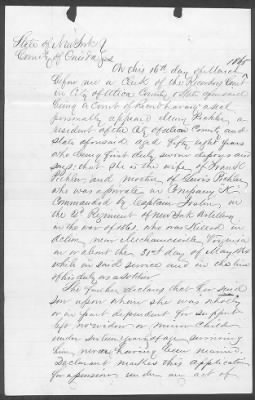 State of New York }
County of Oneida } ss
On this 16th day of March 1865
before me a Clerk of the Recorders Court
in City of Utica County & State aforesaid
being a Court of Record having a seal
personally appeared Mary
resident of the City of Utica County and
state aforesaid aged Fifty Eight years
who being first duly sworn deposes and
says that she is the wife of
and mother of
who was a private in Company K
Commanded by Captain
in the Regiment of New York Artillery
in the war of 1861, who was Killed in
Action near Mechanicsville Virginia
on or about the 31st day of May 1864
while in said service and in the line
of his duty as a soldier
She further declares that her said
son upon whom she was wholly
or in part dependent for support
left no widow or minor child
under sixteen years of age surviving
him, never having been married.
Declarant makes this application
for a pension under any act of